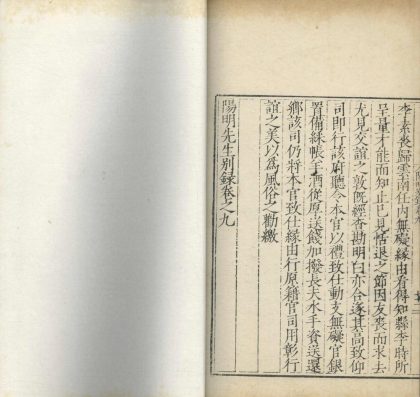 李素喪歸雲南任內無礙緣由看得知縣李時所
呈量才能而知止已見恬退之節因友喪而求去
尤見交誼之敦旣經查勘明白亦合遂其高致仰
司卽行該府聽令本官以禮致仕動支無礙官銀
置備綵帳羊酒從厚送餞加撥長夫水手資送還
鄉該司仍將本官致仕緣由行原籍官司用彰行
誼之美以爲風俗之勸繳
陽明先生别録卷之九